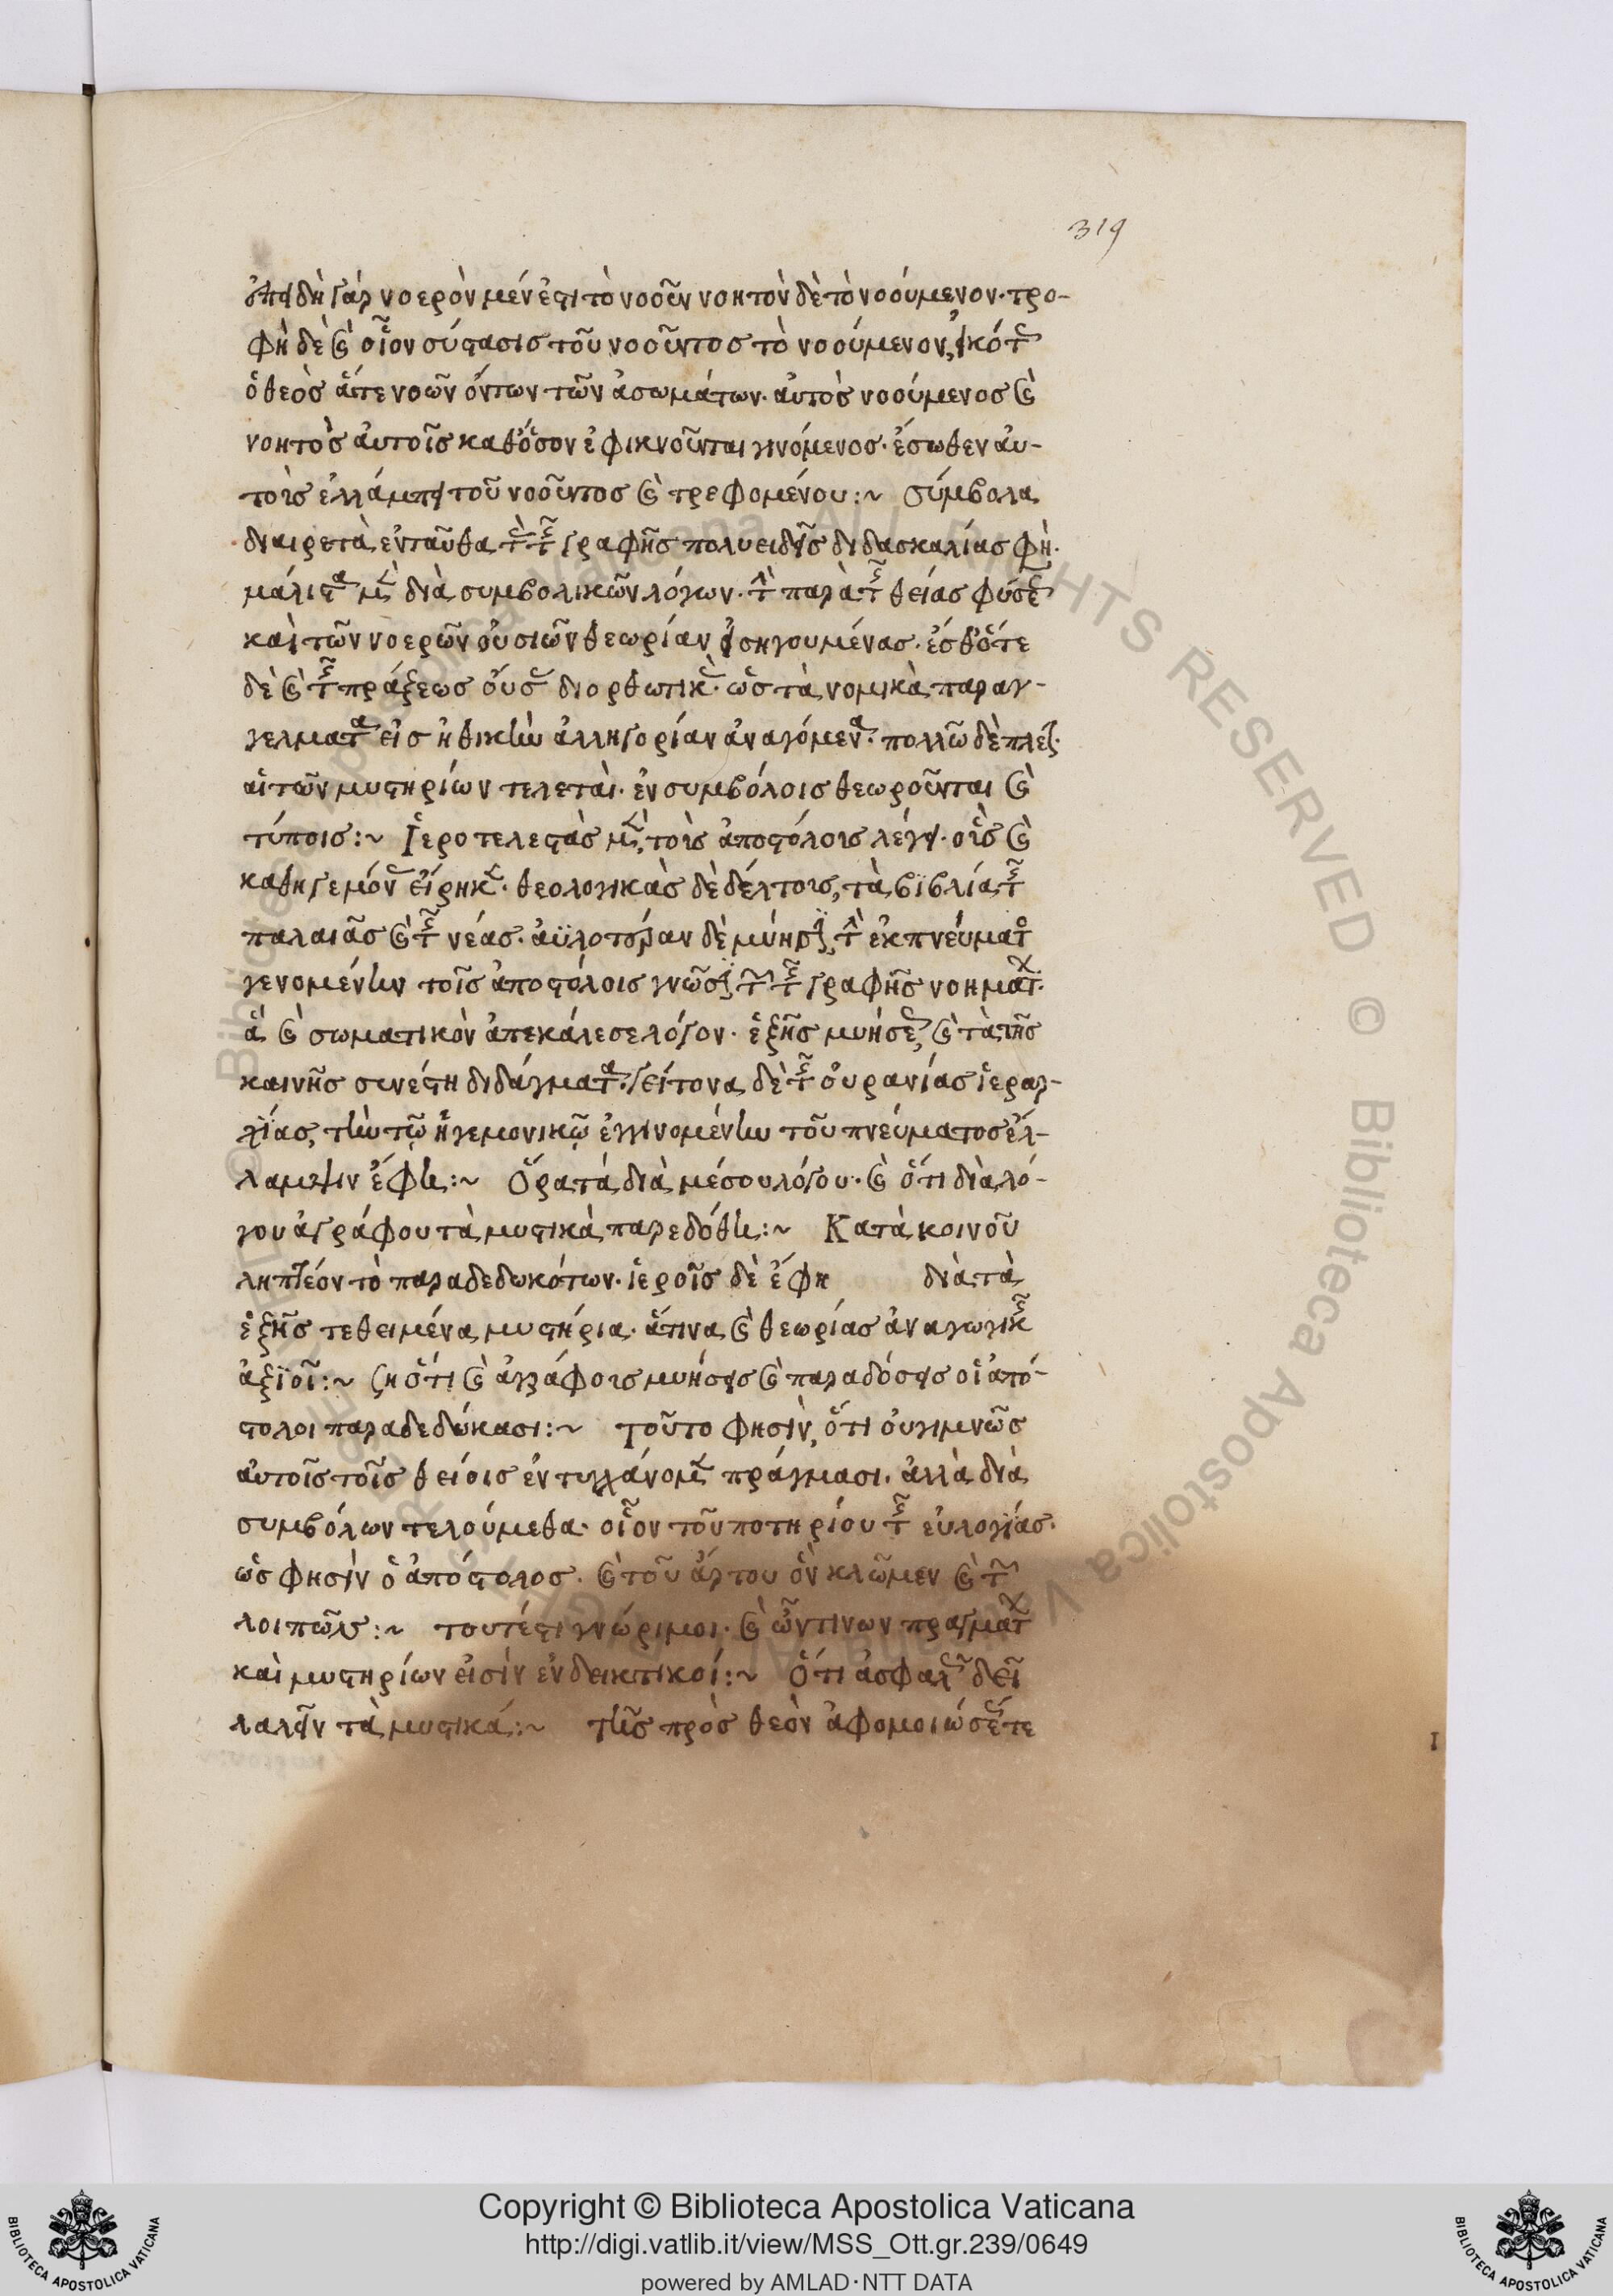 319
ἐπειδὴ γάρ νοερὸν μέν ἐστι τὸ νοοῦν νοητὸν δὲ τὸ νοούμενον· τρο-
φὴ δὲ καὶ οἷον σύστασις τοῦ νοοῦντος τὸ νοούμενον, εἰκότως
ὁ θεὸς ἅτε νοῶν ὄντων τῶν ἀσωμάτων· αὐτὸς νοούμενος καὶ
νοητὸς αὐτοῖς καθόσον ἐφικνοῦνται γινόμενος· ἔσωθεν αὐ-
τοῖς ἐλλάμπει τοῦ νοοῦντος καὶ τρεφομένου:~ σύμβολα
διαιρετὰ ἐνταῦθα τὰς τῆς γραφῆς πολυειδεῖς διδασκαλίας φη·
μάλιστα μὲν διὰ συμβολικῶν λόγων· τὴν παρὰ τῆς θείας φύσεως
καὶ τῶν νοερῶν οὐσιῶν θεωρίαν εἰσηγουμένας· ἔσθότε
δὲ καὶ τῆς πράξεως οὔσας διορθωτικὰς· ὡς τὰ νομικὰ παραγ-
γέλματα εἰς ἠθικὴν ἀλληγορίαν ἀναγόμενα· πολλῶ δὲ πλεῖον
αἱ τῶν μυστηρίων τελεταὶ· ἐν συμβόλοις θεωροῦνται καὶ
τύποις:~ Ἱεροτελεστὰς μὲν, τοὺς ἀποστόλους λέγει· οὓς καὶ
καθηγεμόνας εἴρηκεν· θεολογικὰς δὲ δέλτους, τὰ βιβλία τῆς
παλαιᾶς καὶ τῆς νέας· ἀϋλοτέραν δὲ μύησιν, τὴν ἐκ πνεύματος
γενομένην τοῖς ἀποστόλοις γνῶσιν τῶν τῆς γραφῆς νοημάτων·
ἃ καὶ σωματικὸν ἀπεκάλεσε λόγον· ἑξῆς μυήσεως, καὶ τὰ τῆς
καινῆς συνέστη διδάγματα· γείτονα δὲ τῆς οὐρανίας ἱεραρ-
χίας, τὴν τῷ ἡγεμονικῷ ἐγγινομένην τοῦ πνεύματος ἔλ-
λαμψιν ἔφη:~ Ὅρα τὰ διὰ μέσου λόγου· καὶ ὅτι διὰ λό-
γου ἀγράφου τὰ μυστικὰ παρεδόθη:~ Κατὰ κοινοῦ
ληπτέον τὸ παραδεδωκότων· ἱεροῖς δὲ ἔφη διὰ τὰ
ἑξῆς τεθειμένα μυστήρια· ἅτινα καὶ θεωρίας ἀναγωγικῆς
ἀξιοῖ:~ ζη ὅτι καὶ ἀγράφοις μυήσεσι καὶ παραδόσεσι οἱ ἀπό-
στολοι παραδεδώκασι:~ τοῦτο φησὶν, ὅτι οὐ γυμνῶς
αὐτοῖς τοῖς θείοις ἐντυγχάνομεν πράγμασι· ἀλλὰ διὰ
συμβόλων τελούμεθα· οἷον τοῦ ποτηρίου τῆς εὐλογίας·
ὡς φησὶν ὁ ἀπόστολος· καὶ τοῦ ἄρτου ὃν κλῶμεν καὶ τῶν
λοιπῶν:~ τουτέστι γνώριμοι· καὶ ὧντινων πραγμάτων
καὶ μυστηρίων εἰσὶν ἐνδεικτικοί:~ Ὅτι ἀσφαλῶς δεῖ
λαλεῖν τὰ μυστικά:~ τῆς πρὸς θεὸν ἀφομοιώσεώς τε
Copyright © Biblioteca Apostolica Vaticana
http://digi.vatlib.it/view/MSS_Ott.gr.239/0649
powered by AMLAD·NTT DATA